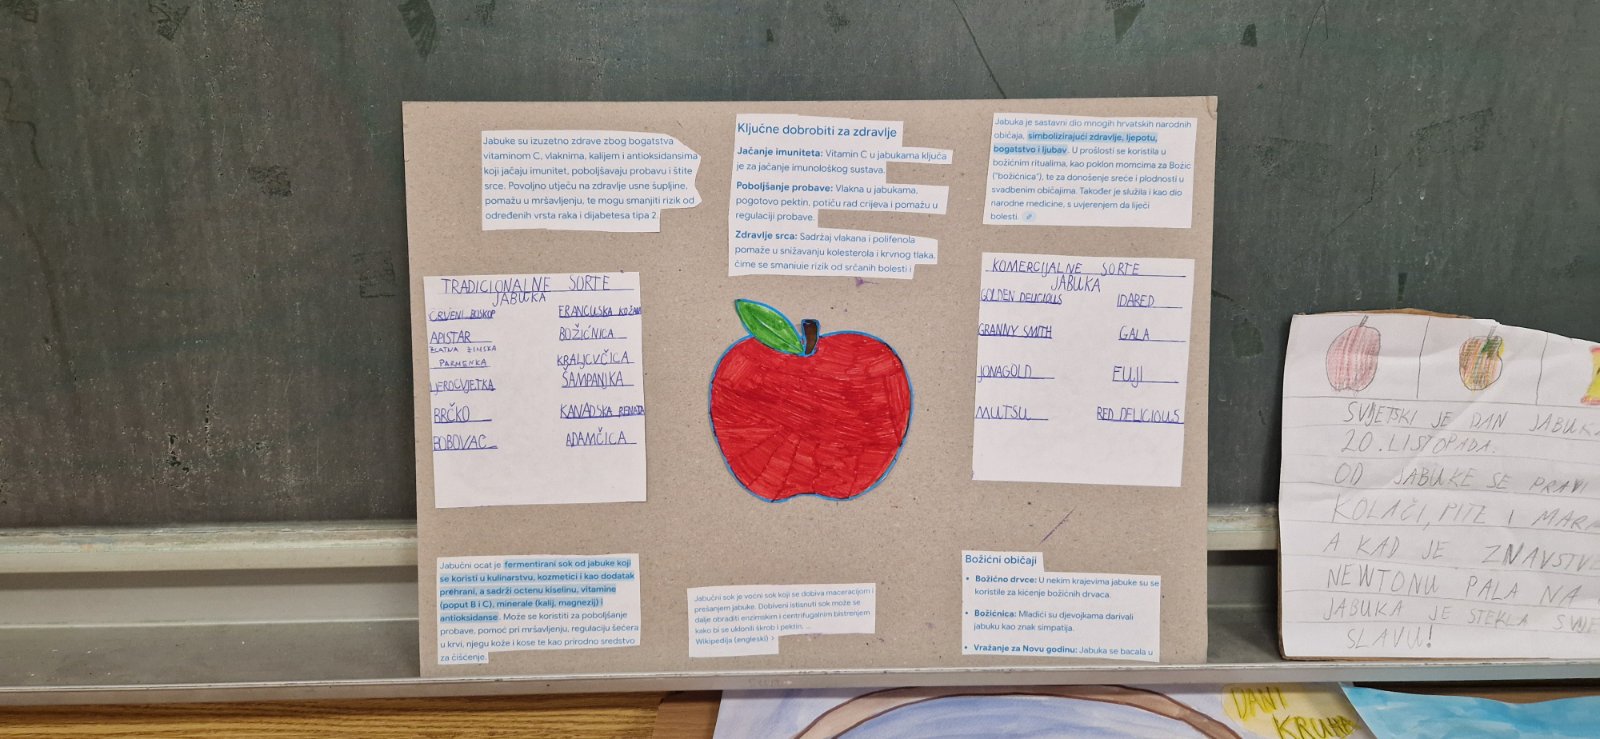 Jabuke su izuzetno zdrave zbog bogatstva
vitaminom C, vlaknima, kalijem i antioksidansima
koji jačaju imunitet, poboljšavaju probavu i štite
srce. Povoljno utječu na zdravlje usne šupljine,
pomažu u mršavljenju, te mogu smanjiti rizik od
određenih vrsta raka i dijabetesa tipa 2.
Ključne dobrobiti za zdravlje
Jačanje imuniteta: Vitamin C u jabukama ključa
je za jačanje imunološkog sustava.
Poboljšanje probave: Vlakna u jabukama,
pogotovo pektin, potiču rad crijeva i pomažu u
regulaciji probave.
Zdravlje srca: Sadržaj vlakana i polifenola
pomaže u snižavanju kolesterola i krvnog tlaka,
čime se smanjuje rizik od srčanih bolesti i
Jabuka je sastavni dio mnogih hrvatskih narodnih
običaja, simbolizirajući zdravlje, ljepotu,
bogatstvo i ljubav. U prošlosti se koristila u
božićnim ritualima, kao poklon momcima za Božić
("božićnica"), te za donošenje sreće i plodnosti u
svadbenim običajima. Također je služila i kao dio
narodne medicine, s uvjerenjem da liječi
bolesti.
TRADICIONALNE SORTE
JABUKA
CRVENI BOSKOP
APISTAR
ZLATNA ZIMSKA
PARMENKA
LJEROCVJETKA
BRČKO
BOBOVAC
FRANCUSKA KOŽARA
BOŽIĆNICA
KRALJCVČICA
ŠAMPANJKA
KANADSKA RENATA
ADAMČICA
KOMERCIJALNE SORTE
JABUKA
GOLDEN DELICIOUS
GRANNY SMITH
JONAGOLD
MUTSU
IDARED
GALA
FUJI
RED DELICIOUS
Jabučni ocat je fermentirani sok od jabuke koji
se koristi u kulinarstvu, kozmetici i kao dodatak
prehrani, a sadrži octenu kiselinu, vitamine
(poput B i C), minerale (kalij, magnezij) i
antioksidanse. Može se koristiti za poboljšanje
probave, pomoć pri mršavljenju, regulaciju šećera
u krvi, njegu kože i kose te kao prirodno sredstvo
za čišćenje.
Jabučni sok je voćni sok koji se dobiva maceracijom i
prešanjem jabuke. Dobiveni istisnuti sok može se
dalje obraditi enzimskim i centrifugalnim bistrenjem
kako bi se uklonili škrob i pektin, ...
Wikipedija (engleski) >
Božićni običaji
• Božićno drvce: U nekim krajevima jabuke su se
koristile za kićenje božićnih drvaca.
• Božićnica: Mladići su djevojkama darivali
jabuku kao znak simpatija.
• Vražanje za Novu godinu: Jabuka se bacala u
SVJETSKI JE DAN JABUKA
20. LISTOPADA.
OD JABUKE SE PRAVI
KOLAČI, PITE I MARM
A KAD JE ZNAVSTVE
NEWTONU PALA NA
JABUKA JE STEKLA SVJE
SLAVU!
DANI
KRUHA